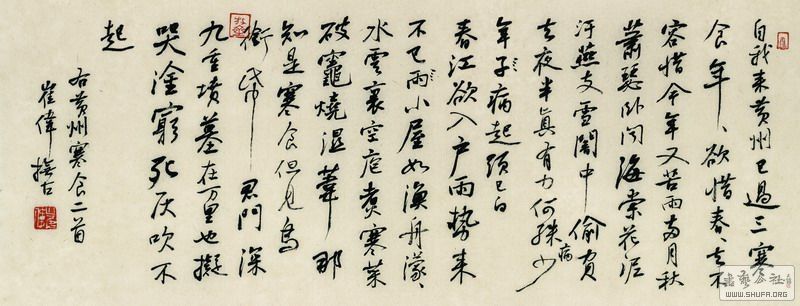 自我来黄州已過三寒
食年、欲惜春、去不
容惜今年又苦雨两月秋
蕭瑟卧闻海棠花泥
汙燕支雪闇中偷負
去夜半真有力何殊少
病
年子病起頭已白
春江欲入户雨勢来
不已雨小屋如漁舟濛、
水雲裏空庖煮寒菜
破竈燒濕葦那
知是寒食但見烏
銜帋君門深
九重墳墓在万里也擬
哭塗窮死灰吹不
起
右黄州寒食二首
崔偉撫古
WWW.SHUFA.ORG